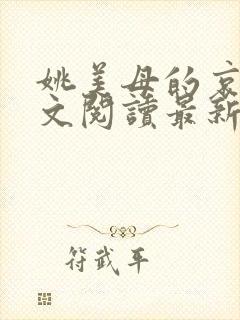 姚美母的哀
文閱讀最新
符武平